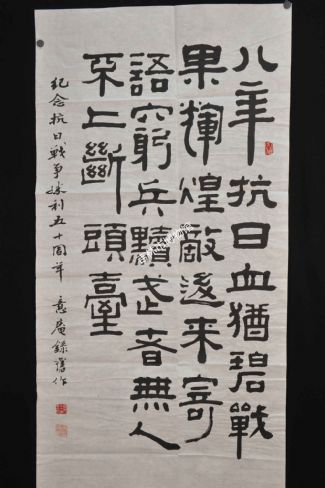 八年抗日血猶碧戰
果輝煌啟後来寄
語窮兵黷武者無人
不上斷頭臺
紀念抗日戰爭勝利五十周年 意庵錄舊作